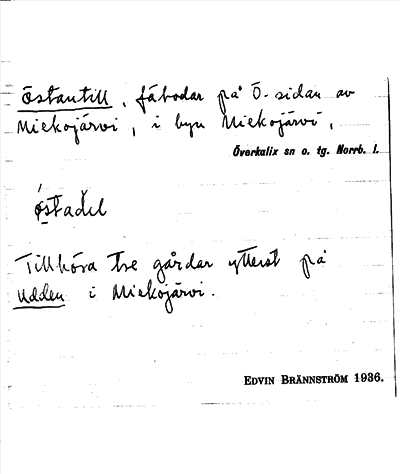 Östantill, fäbodar på Ö-sidan av
Miekojärvi, i byn Miekojärvi,
Överkalix sn o. tg. Norrb. l.
Tillhöra tre gårdar ytterst på
Udden i Miekojärvi.
EDVIN BRÄNNSTRÖM 1936.